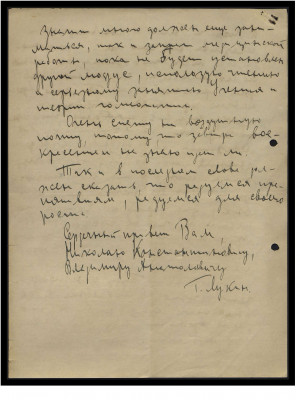 Знаем много должен еще зани-
маться, так и запрос медицинской
работы, пока не будет установлен
другой модус, использую чтению
и серьезному занятию Учения и
теории гомеопатии.
Очень спешу на воздушную
почту потому что завтра вос-
кресенье и не знаю идет ли.
Так и в последнем слове дол-
жен сказать, что радуемся пре-
пятствиям, радуемся для своего
роста.
Сердечный привет Вам,
Николаю Константиновичу,
Владимиру Анатольевичу
Г. Лукин